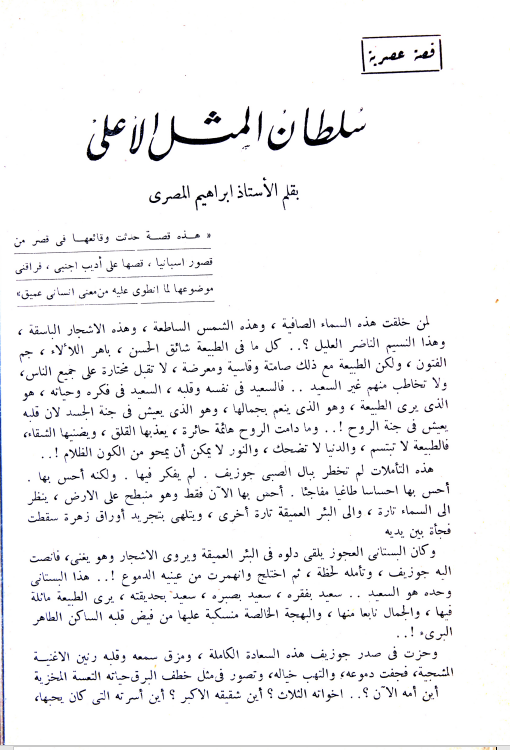 قصة عصرية
سلطان المثل الأعلى
بقلم الأستاذ ابراهيم المصرى
« هذه قصة حدثت وقائعها فى قصر من
قصور اسبانيا ، قصها على أديب اجنبى ، فراقنى
موضوعها لما انطوى عليه من معنى انسانى عميق»
لمن خلقت هذه السماء الصافية ، وهذه الشمس الساطعة ، وهذه الاشجار الباسقة ،
وهذا النسيم الناضر العليل ؟.. كل ما فى الطبيعة شائق الحسن ، باهر اللألاء ، جم
الفتون ، ولكن الطبيعة مع ذلك صامتة وقاسية ومعرضة ، لا تقبل مختارة على جميع الناس،
ولا تخاطب منهم غير السعيد .. فالسعيد فى نفسه وقلبه ، السعيد فى فكره وحياته ، هو
الذى يرى الطبيعة ، وهو الذى ينعم بجمالها ، وهو الذى يعيش فى جنة الجسد لان قلبه
يعيش فى جنة الروح !.. وما دامت الروح هائمة حائرة ، يعذبها القلق ، ويضنيها الشقاء،
فالطبيعة لا تبتسم ، والدنيا لا تضحك ، والنور لا يمكن أن يمحو من الكون الظلام !..
هذه التأملات لم تخطر ببال الصبى جوزيف . لم يفكر فيها . ولكنه أحس بها .
أحس بها احساسا طاغيا مفاجئا . أحس بها الآن فقط وهو منبطح على الارض ، ينظر
الى السماء تارة ، والى البئر العميقة تارة أخرى ، ويتلهى بتجريد أوراق زهرة سقطت
فجأة بين يديه
وكان البستانى العجوز يلقى دلوه فى البئر العميقة ويروى الاشجار وهو يغنى، فانصت
اليه جوزيف ، وتأمله لحظة ، ثم اختلج وانهمرت من عينيه الدموع !.. هذا البستانى
وحده هو السعيد .. سعيد بفقره ، سعيد بصبره ، سعيد بحديقته ، يرى الطبيعة ماثلة
فيها ، والجمال نابعا منها ، والبهجة الخالصة منسكبة عليها من فيض قلبه الساكن الطاهر
البرىء !..
وحزت فى صدر جوزيف هذه السعادة الكاملة ، ومزق سمعه وقلبه رنين الاغنية
المشجية، فجفت دموعه، والتهب خياله، وتصور فى مثل خطف البرق حياته التعسة المخزية
أين أمه الآن ؟.. اخواته الثلاث ؟ أين شقيقه الاكبر ؟ أين أسرته التى كان يحبها،